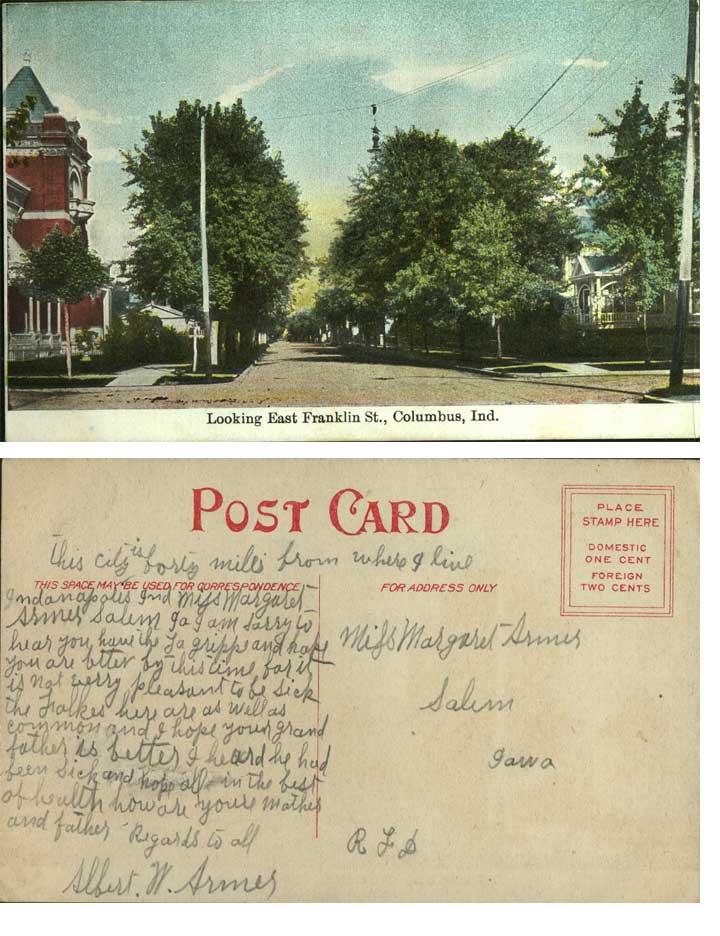 Looking East Franklin St., Columbus, Ind.
POST CARD
PLACE
STAMP HERE
DOMESTIC
ONE CENT
FOREIGN
TWO CENTS
This city is forty mills from where I live
THIS SPACE MAY BE USED FOR CORRESPONDENCE
FOR ADDRESS ONLY
Indanapoles Ind Miss Margaret
Armer Salem Ia I am sorry to
hear you have the La grippe and hope
you are btter by this time for it
is not verry pleasant to be sick
the Folkes here are as well as
common and I hope your grand
father is better I heard he had
been sick and hope all in the best
of health how are youre mother
and father Regards to all
Albert. W. Armer
Miss Margaret Armer
Salem
Iowa
R F D